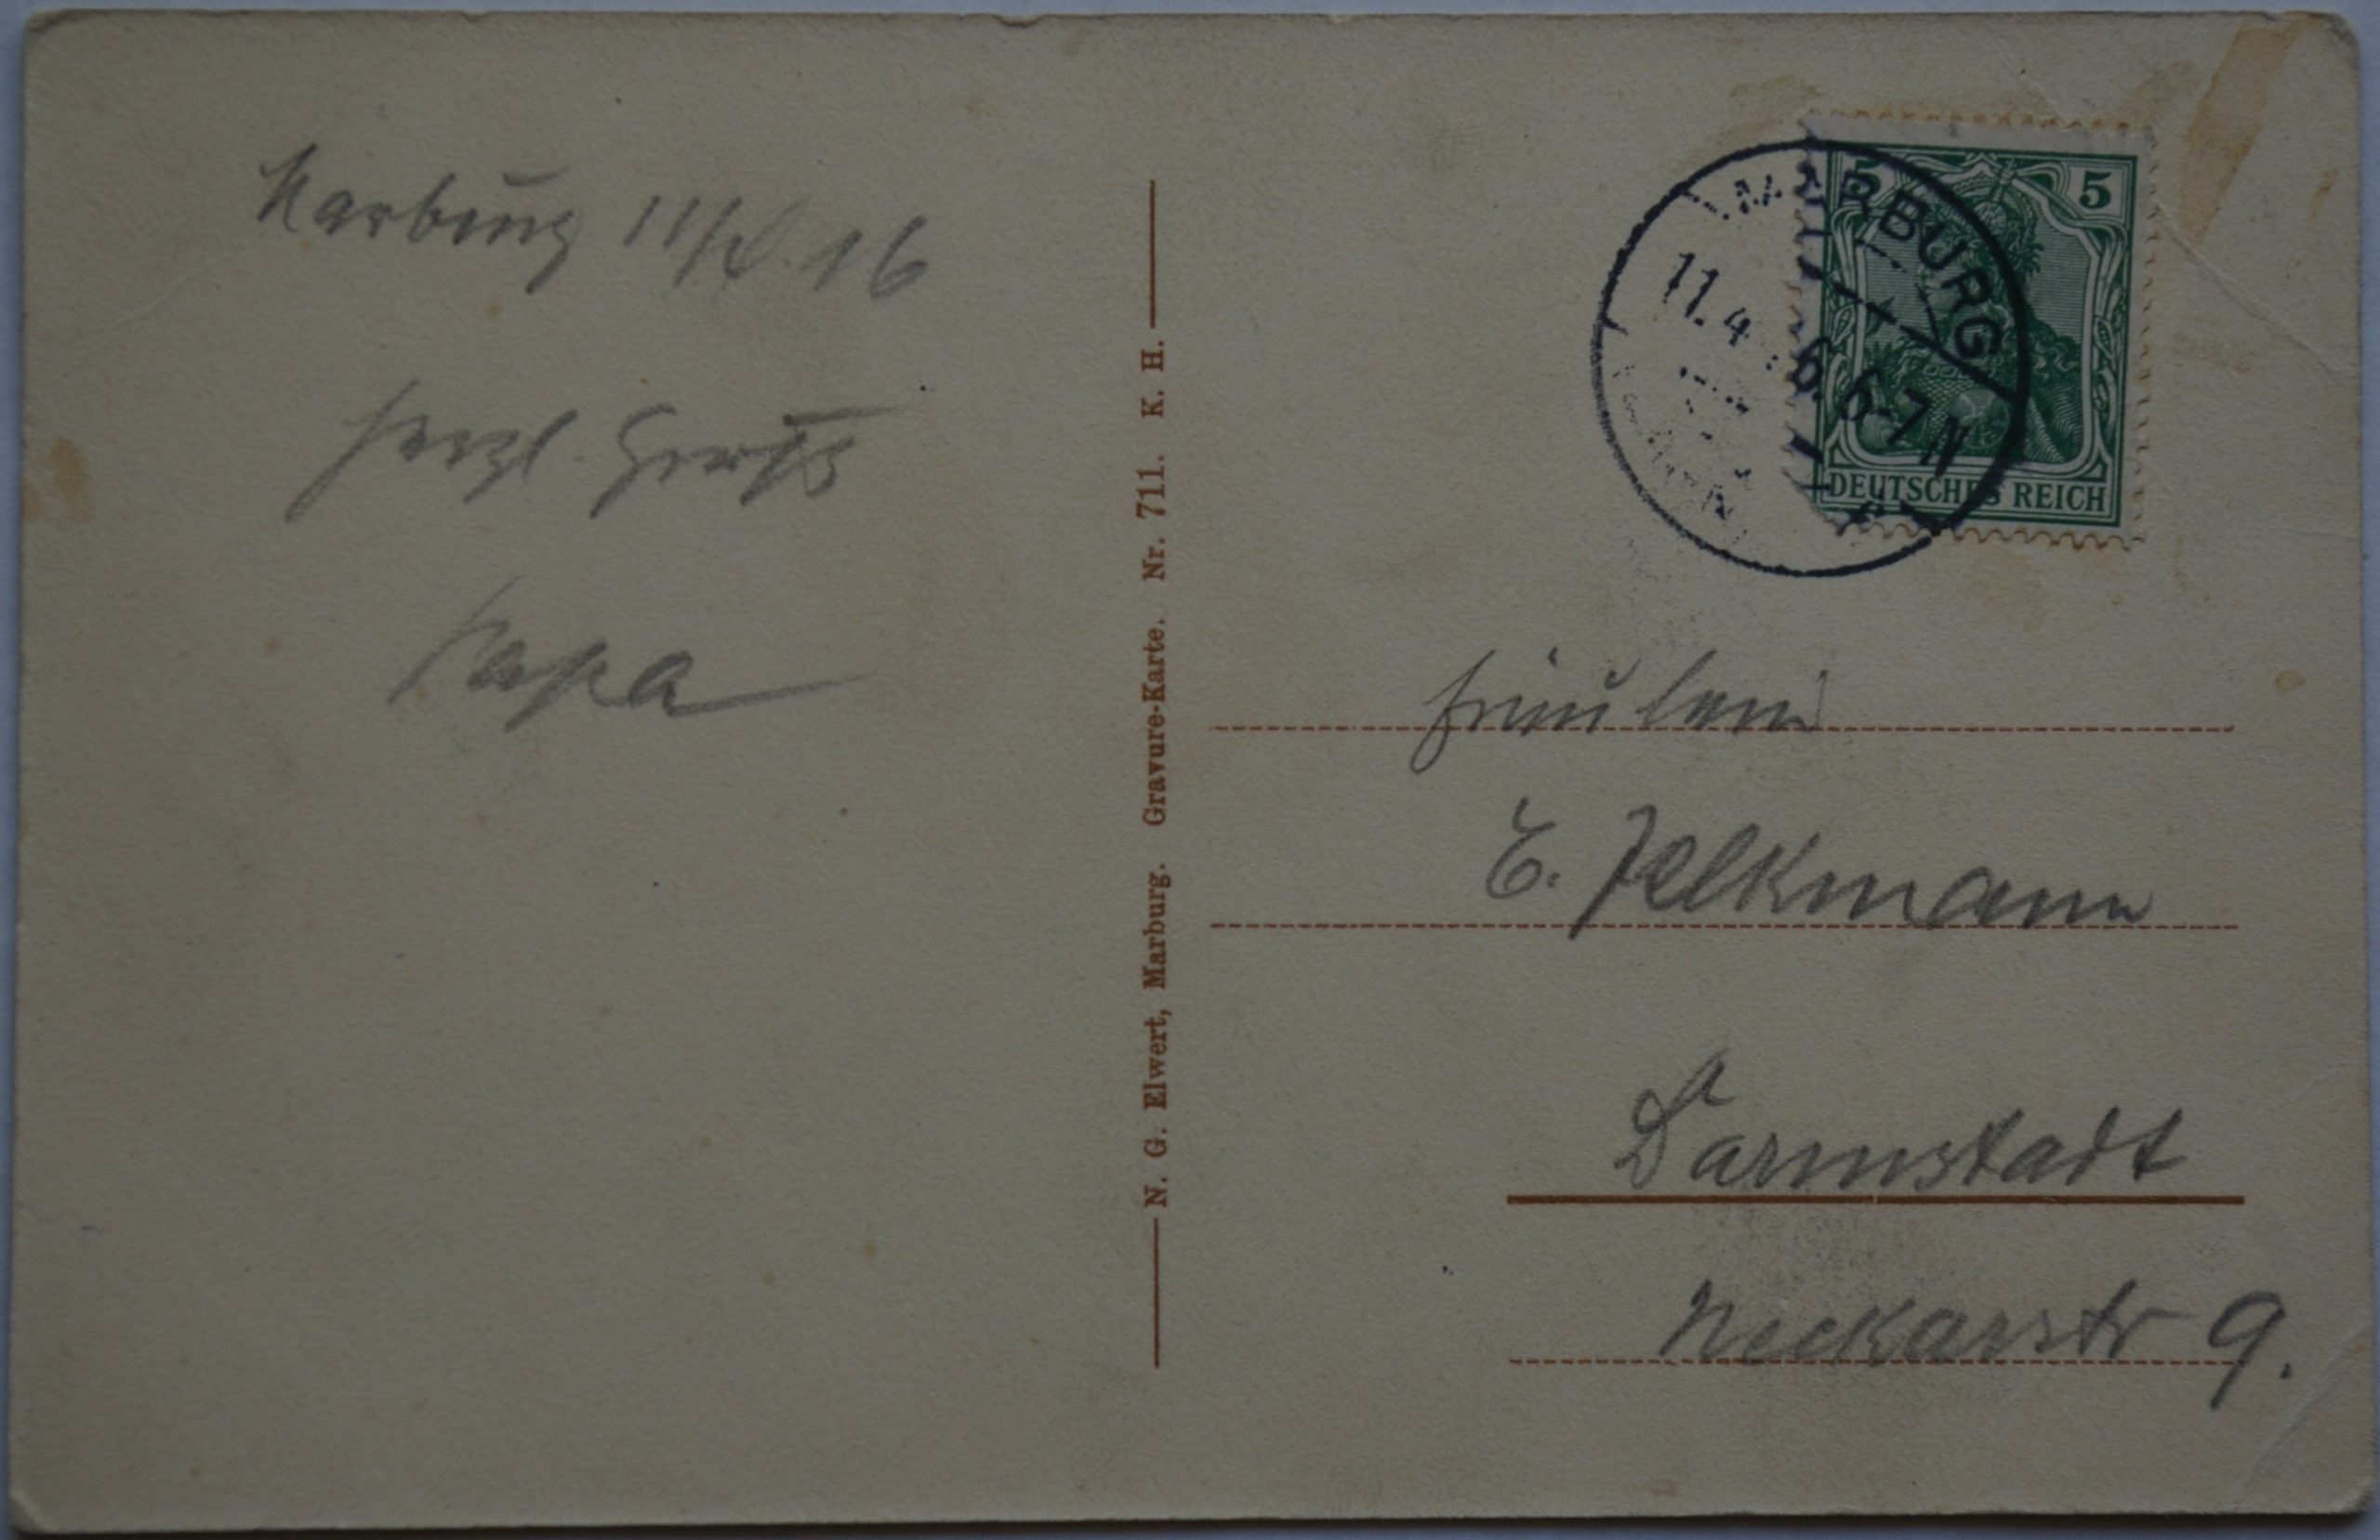 Marburg 11/4. 16
Herzl. Gruß
Papa
N. G. Elwert, Marburg. Gravure-Karte. Nr. 711. K. H.
5 5
DEUTSCHES REICH
MARBURG
11.4. 6. 6-7 N
Fräulein
E. Jelkmann
Darmstadt
Neckarstr 9.